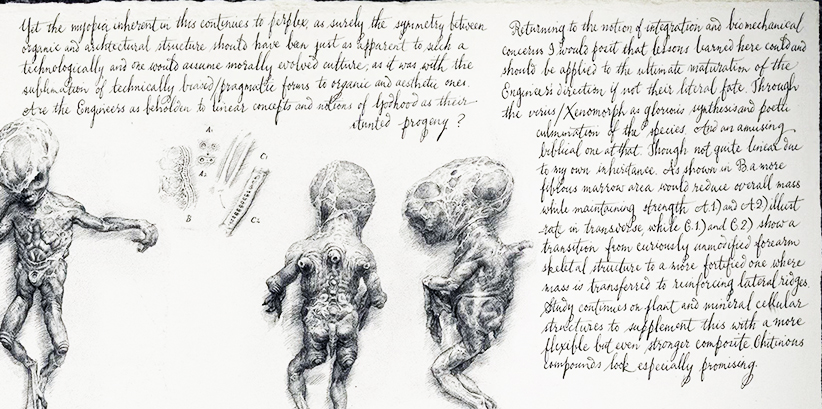 Yet the myopia inherent in this continues to perplex, as surely the symmetry between
organic and architectural structure should have been just as apparent to such a
technologically and one would assume morally evolved culture, as it was with the
sublimation of technically based/pragmatic forms to organic and aesthetic ones.
Are the Engineers as beholden to linear concepts and notions of Godhood as their
stunted progeny?
A.
A2
B
C1
C2
Returning to the notion of integration and biomechanical
concerns I would posit that lessons learned here could and
should be applied to the ultimate maturation of the
Engineers direction if not their literal fate. Through
the virus/Xenomorph as glorious synthesis and poetic
culmination of the species. And an amusing
biblical one at that. Though not quite linear due
to my own inheritance. As shown in B a more
fibrous marrow area would reduce overall mass
while maintaining strength. A.1) and A.2) illust
rate in transverse while C.1) and C.2) show a
transition from curiously unmodified forearm
skeletal structure to a more fortified one where
mass is transferred to reinforcing lateral ridges.
Study continues on plant and mineral cellular
structures to supplement this with a more
flexible but even stronger composite. Chitinous
compounds look especially promising.